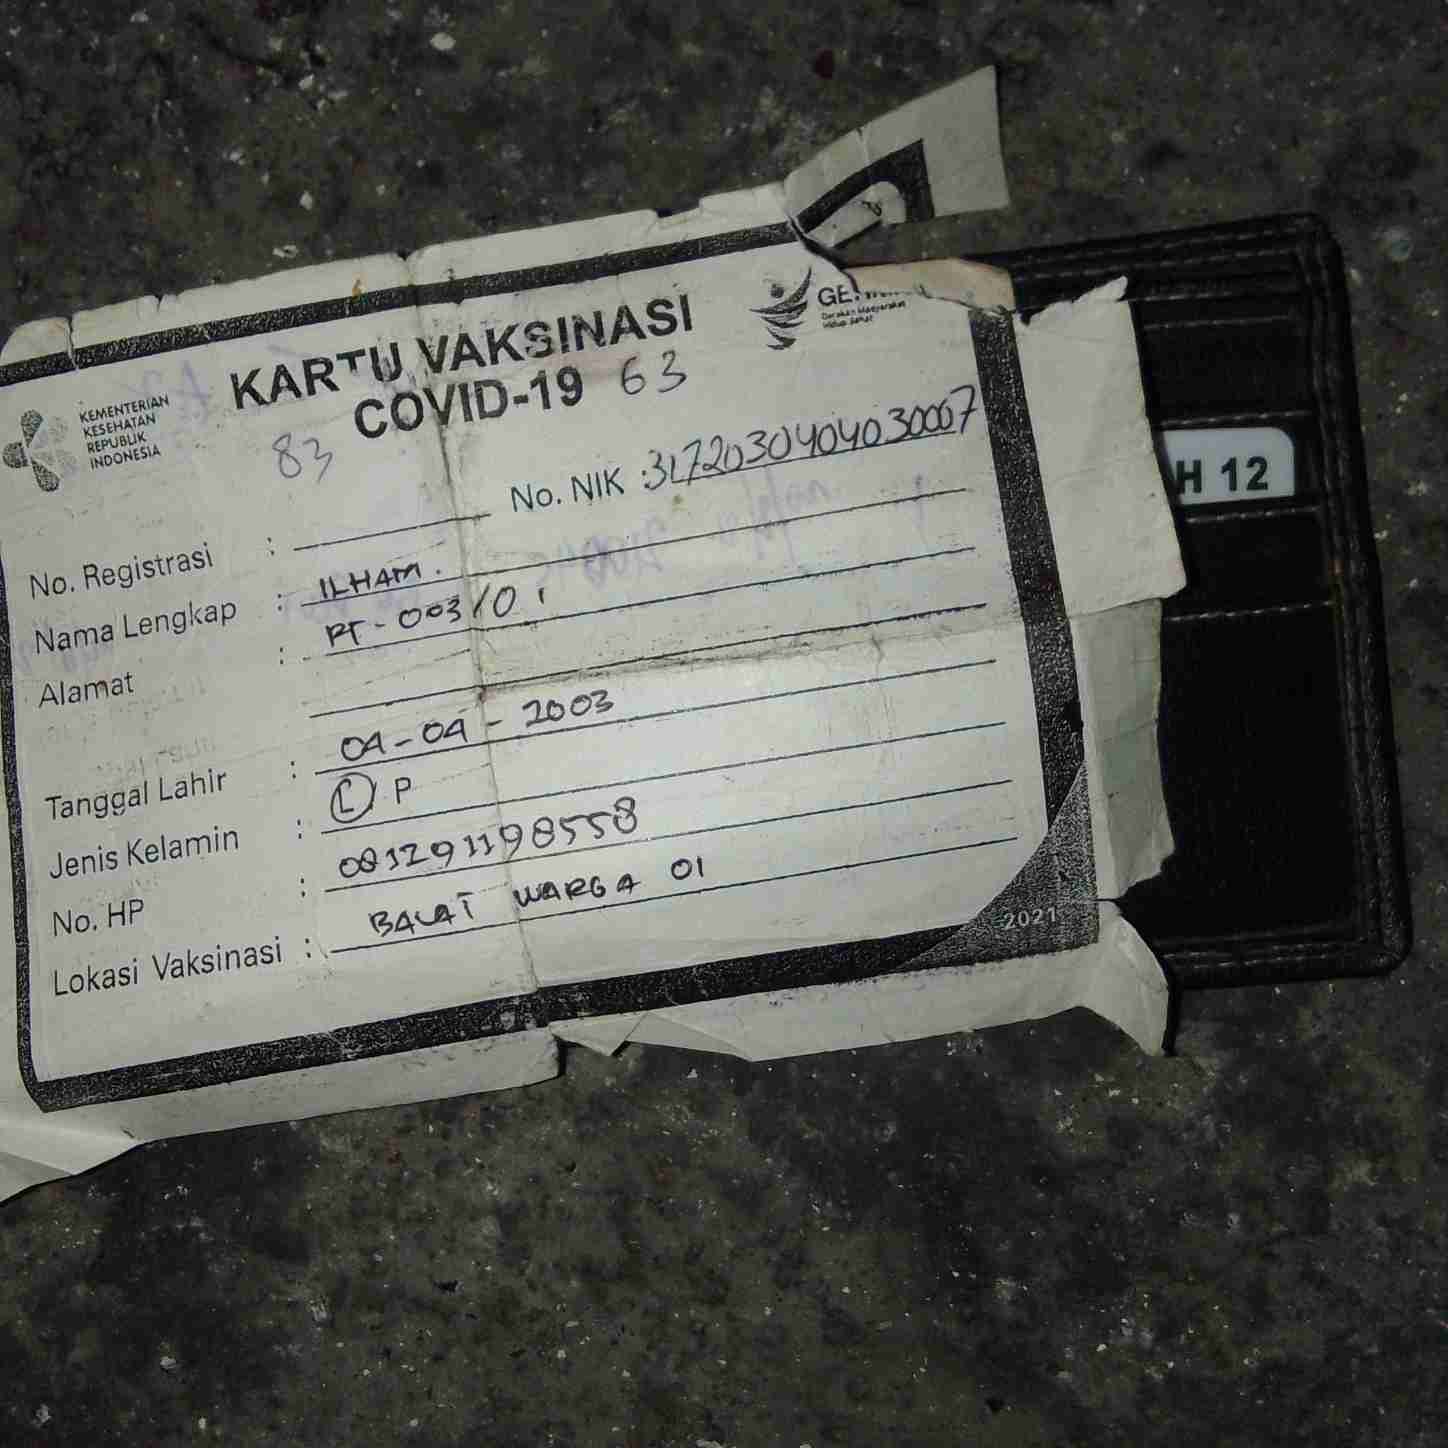 KARTU VAKSINASI
COVID-19 63
83
KEMENTERIAN
KESEHATAN
REPUBLIK
INDONESIA
Gerakan Masyarakat
Hidup Sehat
No. NIK : 3172030404030007
No. Registrasi :
Nama Lengkap : ILHAM.
Alamat : RT-003/01
Tanggal Lahir : 04-04-2003
Jenis Kelamin : L P
No. HP : 081291198558
Lokasi Vaksinasi : BALAI WARGA 01
2021
H 12